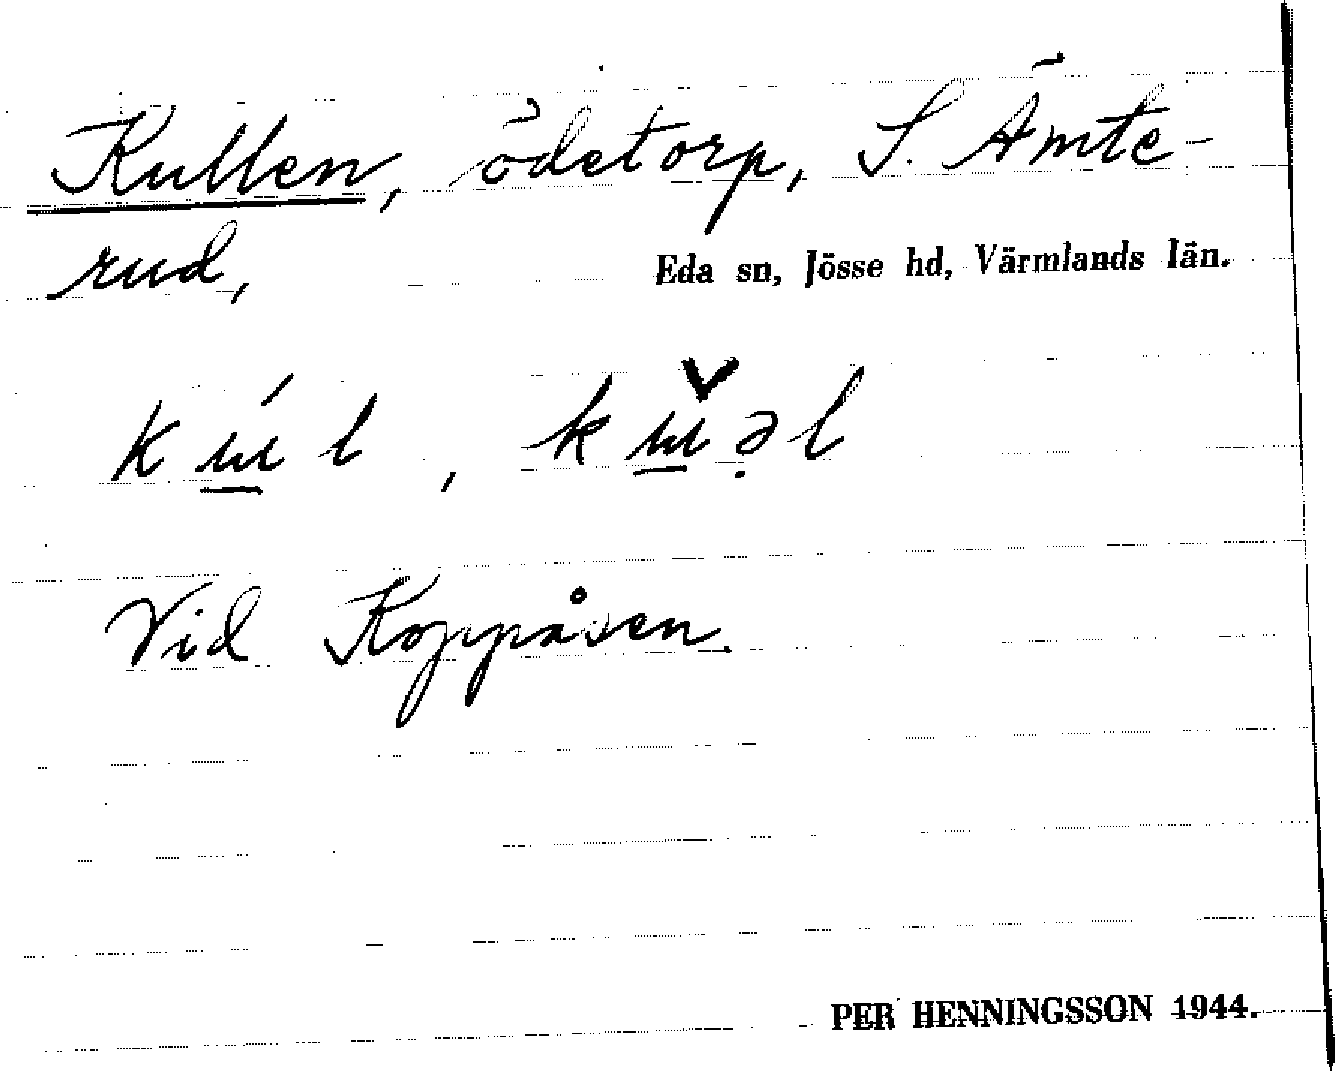 Kullen, ödetorp, S. Ämte-
rud,
Eda sn, Jösse hd, Värmlands län.
Vid Koppåsen.
PER HENNINGSSON 1944.